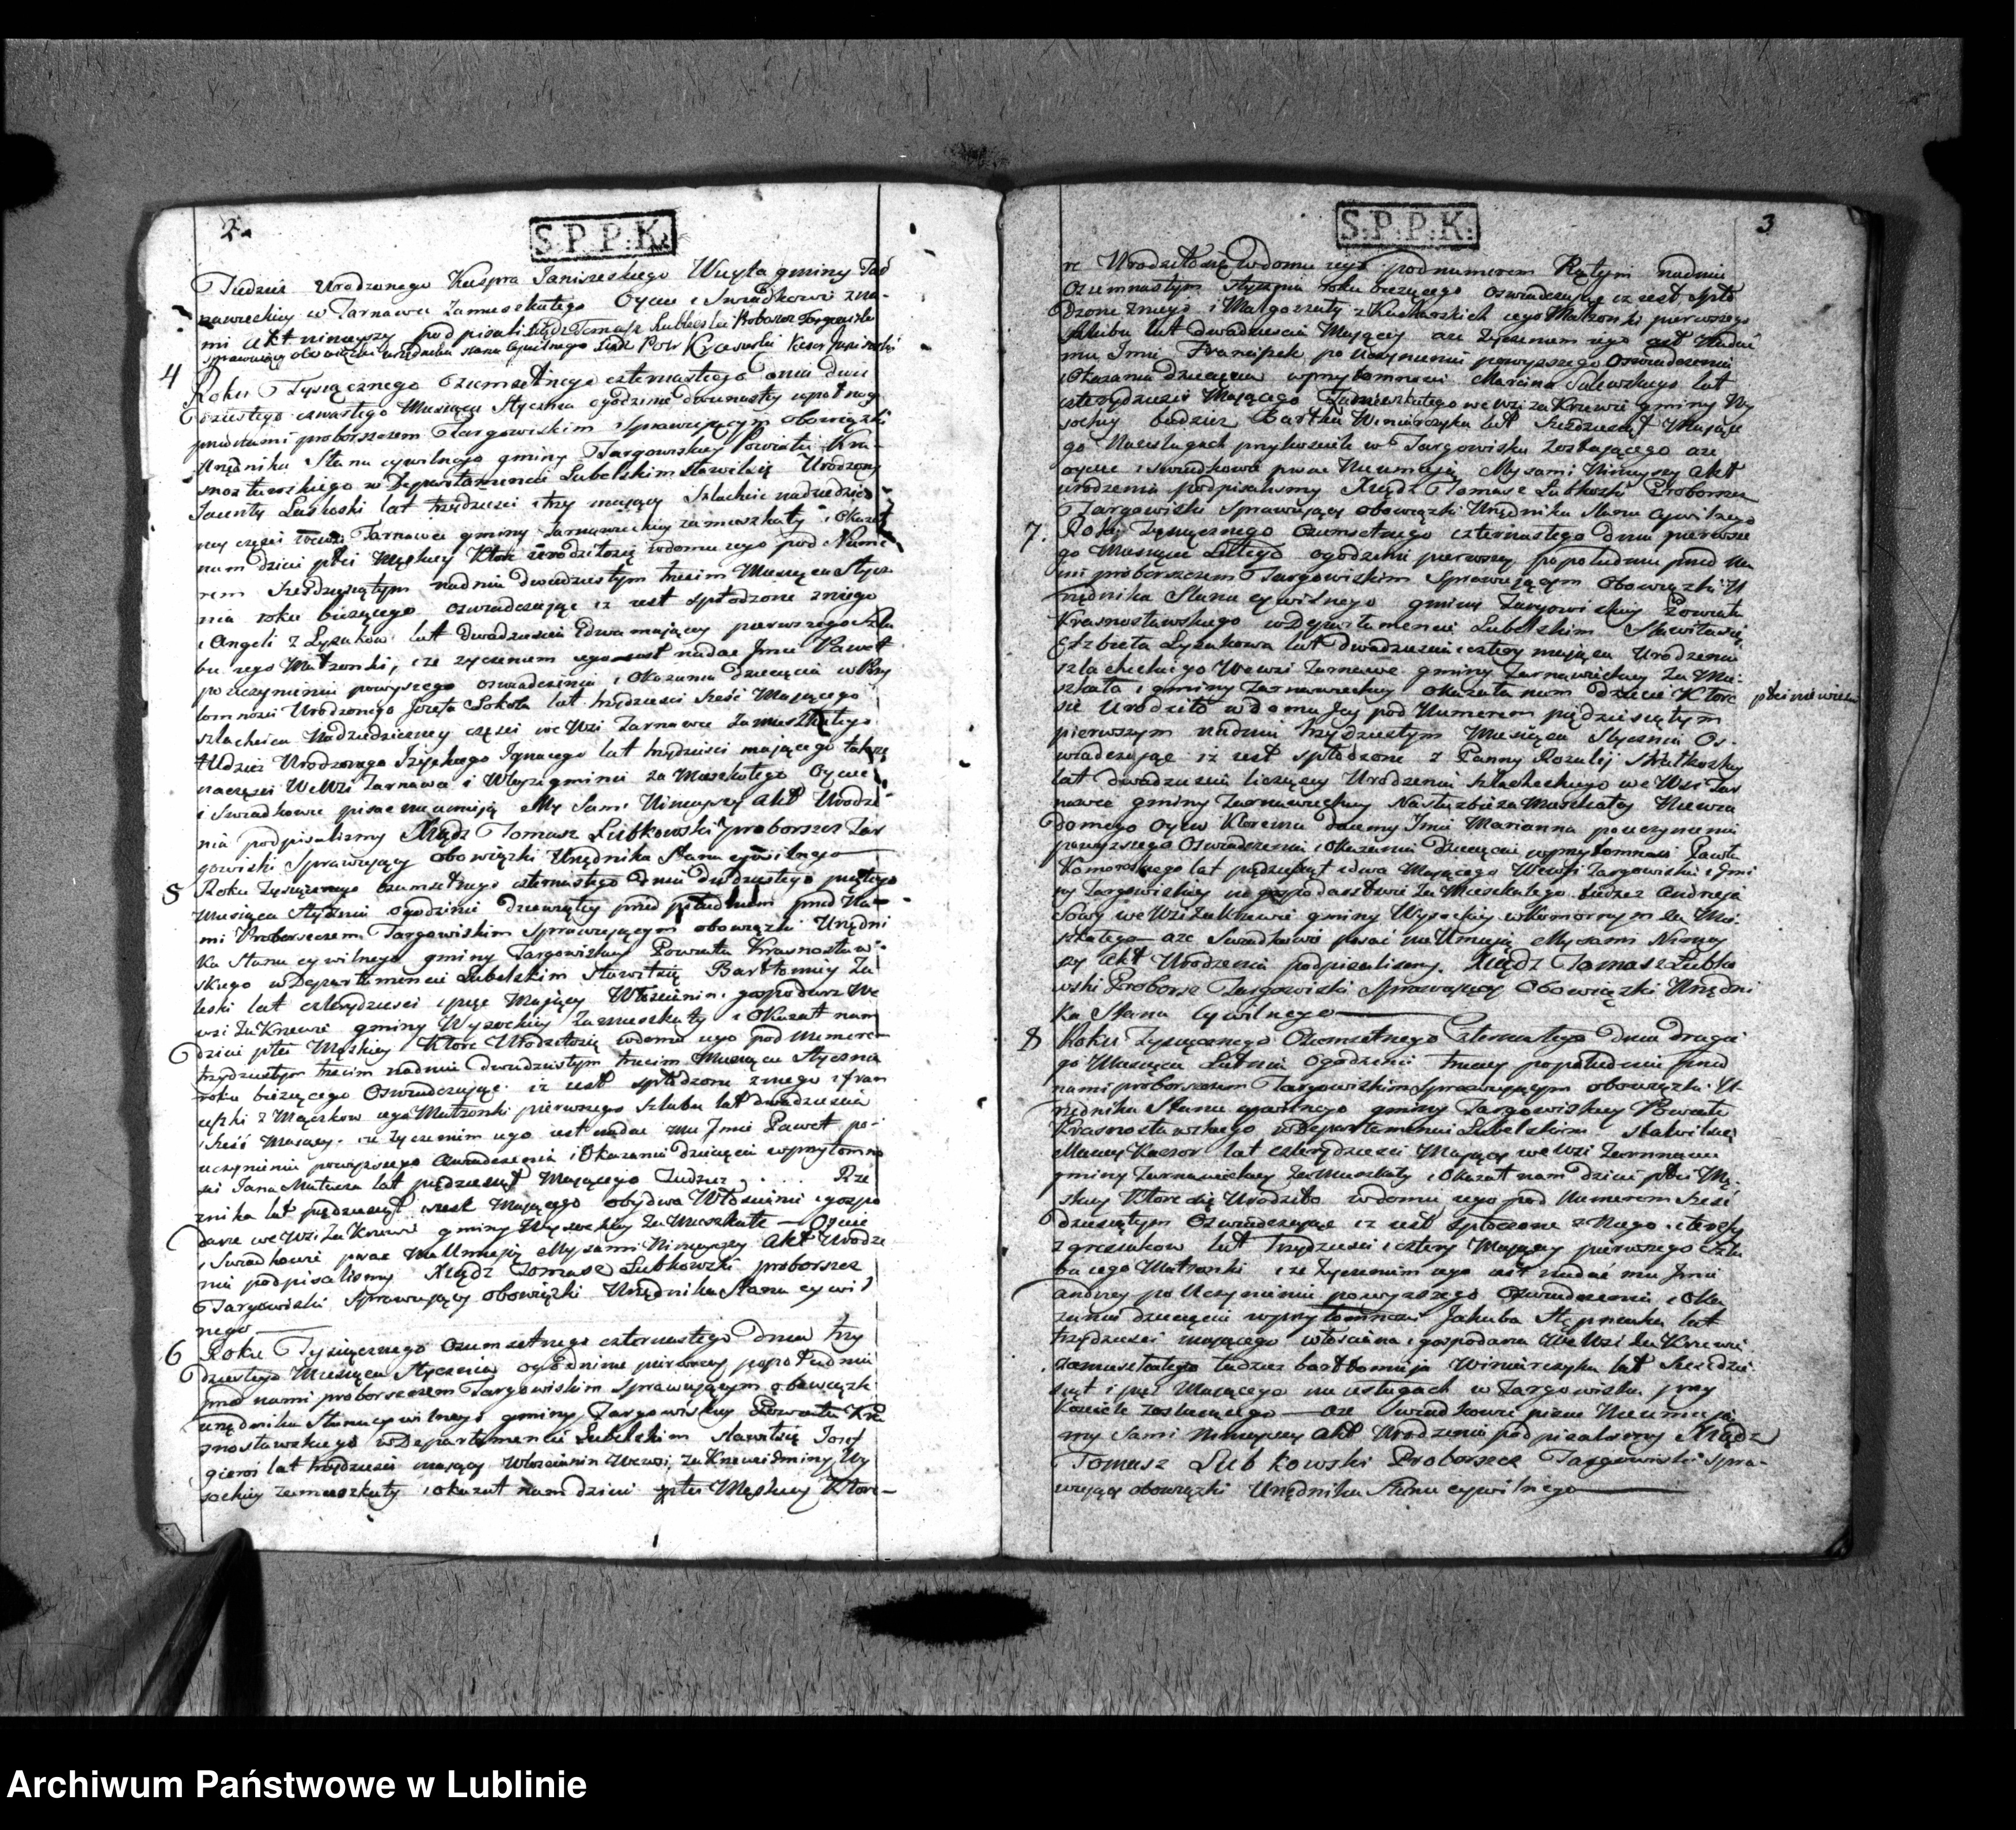 2
S.P.P.K.
Tudzież Urodzonego Kaspra Janiszeskiego Wuyta gminy Tar
nawieckiey w Tarnawce Zamieszkałego Oycem i Swiadkami zna-
mi Akt ninieyszy podpisali Xiądz Tomasz Lubkoski Proboszcz Targowiski
sprawujący obowiązki urzędnika stana cywilnego
4
Roku Tysiącznego Ozumsetnego czternastego dnia dwu
dziestego czwartego Miesiąca Stycznia o godzinie dwunastey w południe
przed nami proborszczem Targowiskim sprawującym obowiązki
Urzędnika Stanu cywilnego gminy Targowskiey Powiatu Kra-
snostawskiego w Departamencie Lubelskim stawił się Urodzony
lat trzydzieści i trzy maiący Szlachcic nadziedzicz
ney części we wsi Tarnawce gminy Tarnawieckiey zamieszkały i okazał
nam dzieci płci Męskiey Które urodziło się w domu iego pod Nume
rem Sześdziesiątym nadniu dwudziestym trzecim Miesiąca Stycz
nia roku bieżącego oswiadczając iż iest spłodzone z niego
i Angeli z Łysaków lat Dwadzieścia i Dwa maiący pierwszego Szlu
bu iego Małżonki, i że życzeniem iego iest nadać Jmie Paweł
po uczynieniu powyszego oswiadczenia i okazaniu dziecięcia w Przy
tomnosci Urodzonego Jozefa Sokoła lat trzydziesci Sześć Maiącego
szlachcica Nadziedziczney części we Wsi Tarnawce Zamieszkałego
tudziesz Urodzonego Ignacego lat trzydziesci maiącego także
na części We Wsi Tarnawce i Wtęyże gminie za Mieszkałego Oyciec
i Swiadkowie pisac nie umieją My Sami Ninieyszy Akt Urodze
nia podpisalismy Xiądz Tomasz Lubkowski proborszcz Tar
gowiski Sprawujący obowiązki Urzędnika Stanu cywilnego
5
Roku Tysiącznego Ozumsetnego czternastego Dnia dwudziestego piątego
Miesiąca Stycznia o godzinie dziewiątey przed południem przed Na-
mi Proborszczem Targowiskim Sprawującym obowiązki Urzędni
ka Stanu cywilnego gminy Targowiskiey Powiatu Krasnostaw-
skiego w Departamencie Lubelskim Stawił się Bartłomiey Za
leski lat czterydziesci i pięć Maiący Włoscianin i gospodarz We
wsi Zakrzewie gminy Wysockiey Zamieszkały i Okazał nam
dzieci płci Męskiey Które Urodziło się w domu iego pod Numere-
trzydziestym trzecim nadniu dwudziestym trzecim Miesiąca Stycznia
roku bieżącego Oswiadczając iż iest spłodzone z niego i Fran
ciszki z Mączkow iego Małżonki pierwszego Szlubu lat dwadziescia
i sześć Maiącey i że życzeniem iego iest nadać mu Jmie Paweł po-
uczynieniu powyszego Oswiadczenia i Okazaniu dziecięcia w przytomno
sci Jana lat pędziesiąt Maiącego Tudziez . . . . Rze
znika lat pędziesiąt i sześć Maiącego obydwa Włoscianie i gospo
darze we Wsi Zakrzewie gminy Wysockiey Zamieszkałe — Oyciec
i Swiadkowie pisac nie Umieją My sami Ninieyszy Akt Urodze
nia podpisalismy Xiądz Tomasz Lubkowski proborszcz
Targowiski Sprawujący obowiązki Urzędnika Stanu cywil
nego
6
Roku Tysiącznego Ozumsetnego czternastego Dnia trzy
dziestego Miesiąca Stycznia o godzinie pierwszey popołudniu
przed nami proborszczem Targowiskim Sprawującym obowiązk
urzędnika Stanu cywilnego gminy Targowiskiey Powiatu Kra
snostawskiego w Departamencie Lubelskim stawił się Jozef
lat trzydziesci maiący Włoscianin We wsi Zakrzewi Gminy Wy
sockiey zamieszkały i okazał nam dzieci płci Męskiey Które-
3
S.P.P.K.
re Urodziło się w domu iego pod numerem Piątym nadniu
Ozumnastym Stycznia roku bieżącego Oswiadczając iż iest spło
dzone z niego i Małgorzaty z Kucharskich iego Małżonki pierwszego
szlubu lat dwadziescia Maiącey i że życzeniem iego iest Nadać
mu Jmie Franciszek po Uczynieniu powyszego Oswiadczenia
i Okazania Dziecięcia w przytomnosci Marcina lat
czterydziesci Maiącego Zamieszkałego we Wsi Zakrzewie gminy Wy
sockiey tudziez Bartka Winiarczyka lat Szesdziesiąt Maiące
go Na usługach przy kosciele w Targowisku Zostaiącego a że
oyciec i swiadkowie pisac Nieumieją My sami Ninieyszy Akt
urodzenia podpisalismy Xiądz Tomasz Lubkoski Proborszcz
Targowiski Sprawujący obowiązki Urzędnika Stanu Cywilnego
7.
Roku Tysiącznego Ozumsetnego czternastego Dnia pierwsze
go Miesiąca Lutego o godzini pierwszy popołudniu przed Na
mi proborszczem Targowiskim Sprawującym Obowiązki U
rzędnika Stanu cywilnego gminy Targowiskiey Powiatu
Krasnostawskiego w Departamencie Lubelskim Stawiła się
Elzbieta Łysakowa lat dwadziescia cztery maiąca Urodzenia
szlacheckiego We wsi Tarnawce gminy Tarnawieckiey Za Mie-
szkała i gminy Tarnawieckiey okazała nam dziecie Ktore płci niewiescie
sie Urodziło w domu Jey pod Numerem piędziesiątym
pierwszym nadniu trzydziestym Miesiąca Stycznia Os-
wiadczając iż iest spłodzone z Panny Rozalij
lat dwadziescia liczącey Urodzenia szlacheckiego we Wsi Tar
nawce gminy Tarnawieckiey Na służbie za Mieszkałey Niewia
domego Oyca Któremu daiemy Jmie Marianna po uczynieniu
powyszego Oswiadczenia i Okazaniu Dziecięcia w przytomnosci Pawła
Komorowskiego lat pędziesiąt i dwa Maiącego We wsi Targowisku i Gmi
ny Targowiskiey na gospodarstwie Za Mieszkałego tudziez Andrzeja
Sowy we Wsi Zakrzewie gminy Wysockiey w Komornym Za Mie-
szkałego a że Swiadkowie pisac nie Umieją My sami Niniey
szy Akt Urodzenia podpisalismy. Xiądz Tomasz Lubko
wski Proborsz Targowiski Sprawujący Obowiązki Urzędni
ka Stanu Cywilnego
8
Roku Tysiącznego Ozumsetnego Czternastego Dnia drugie
go Miesiąca Lutego Ogodzini trzecey popołudniu przed
nami proborszczem Targowiskim Sprawującym obowiązki U-
rzędnika Stanu cywilnego gminy Targowiskiey Powiatu
Krasnostawskiego w Departamencie Lubelskim stawił się
Maciey Kaczor lat czterydziesci Maiący we wsi Tarnawce
gminy Tarnawieckiey Zamieszkały i Okazał nam dzieci płci Mę-
skiey Które się Urodziło w domu iego pod Numerem Sześć
dziesiątym Oswiadczając iż iest spłodzone z Niego i Teresy
z lat trzydziesci i cztery Maiącey pierwszego Szlu
bu iego Małżonki i że Życzeniem iego iest nadać mu Jmie
Andrzey po Uczynieniu powyzszego Oswiadczenia i Oka
zaniu dziecięcia w przytomnosci Jakuba lat
trzydziesci maiącego włościana i gospodarza We Wsi Zakrzewie
zamieszkałego tudziez bartłomieja Winiarczyka lat Szesdzie
siąt i pięć Maiącego na usługach w Targowisku przy
Kosciele zostaiącego a że Swiadkowie pisac Nieumieją
my Sami Ninieyszy Akt Urodzenia podpisalismy Xiądz
Tomasz Lubkowski Proborszcz Targowiski Spra-
wujący obowiązki Urzędnika Stanu cywilnego
Archiwum Państwowe w Lublinie